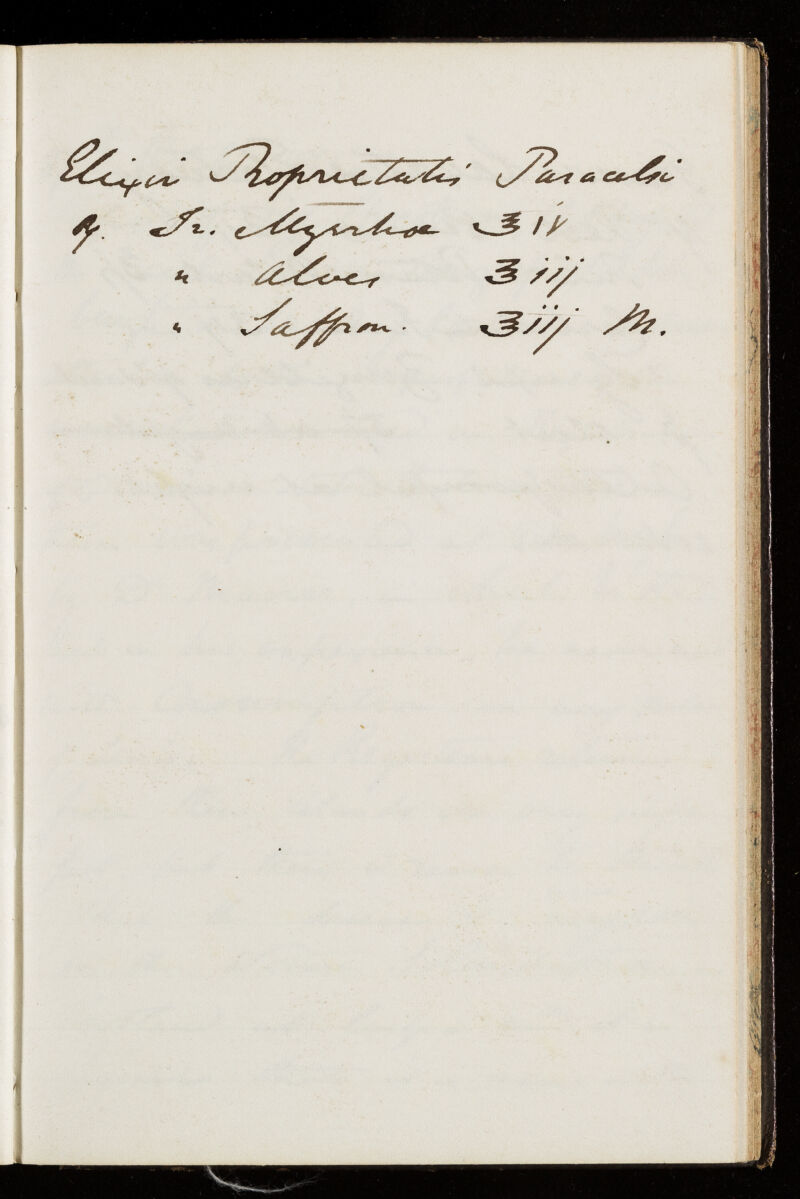 Elixir Proprietatis Paracelsi
℞. Tr. Myrrhae ʒ iv
" Aloes ʒ iij
" Saffron. ʒ iij M.